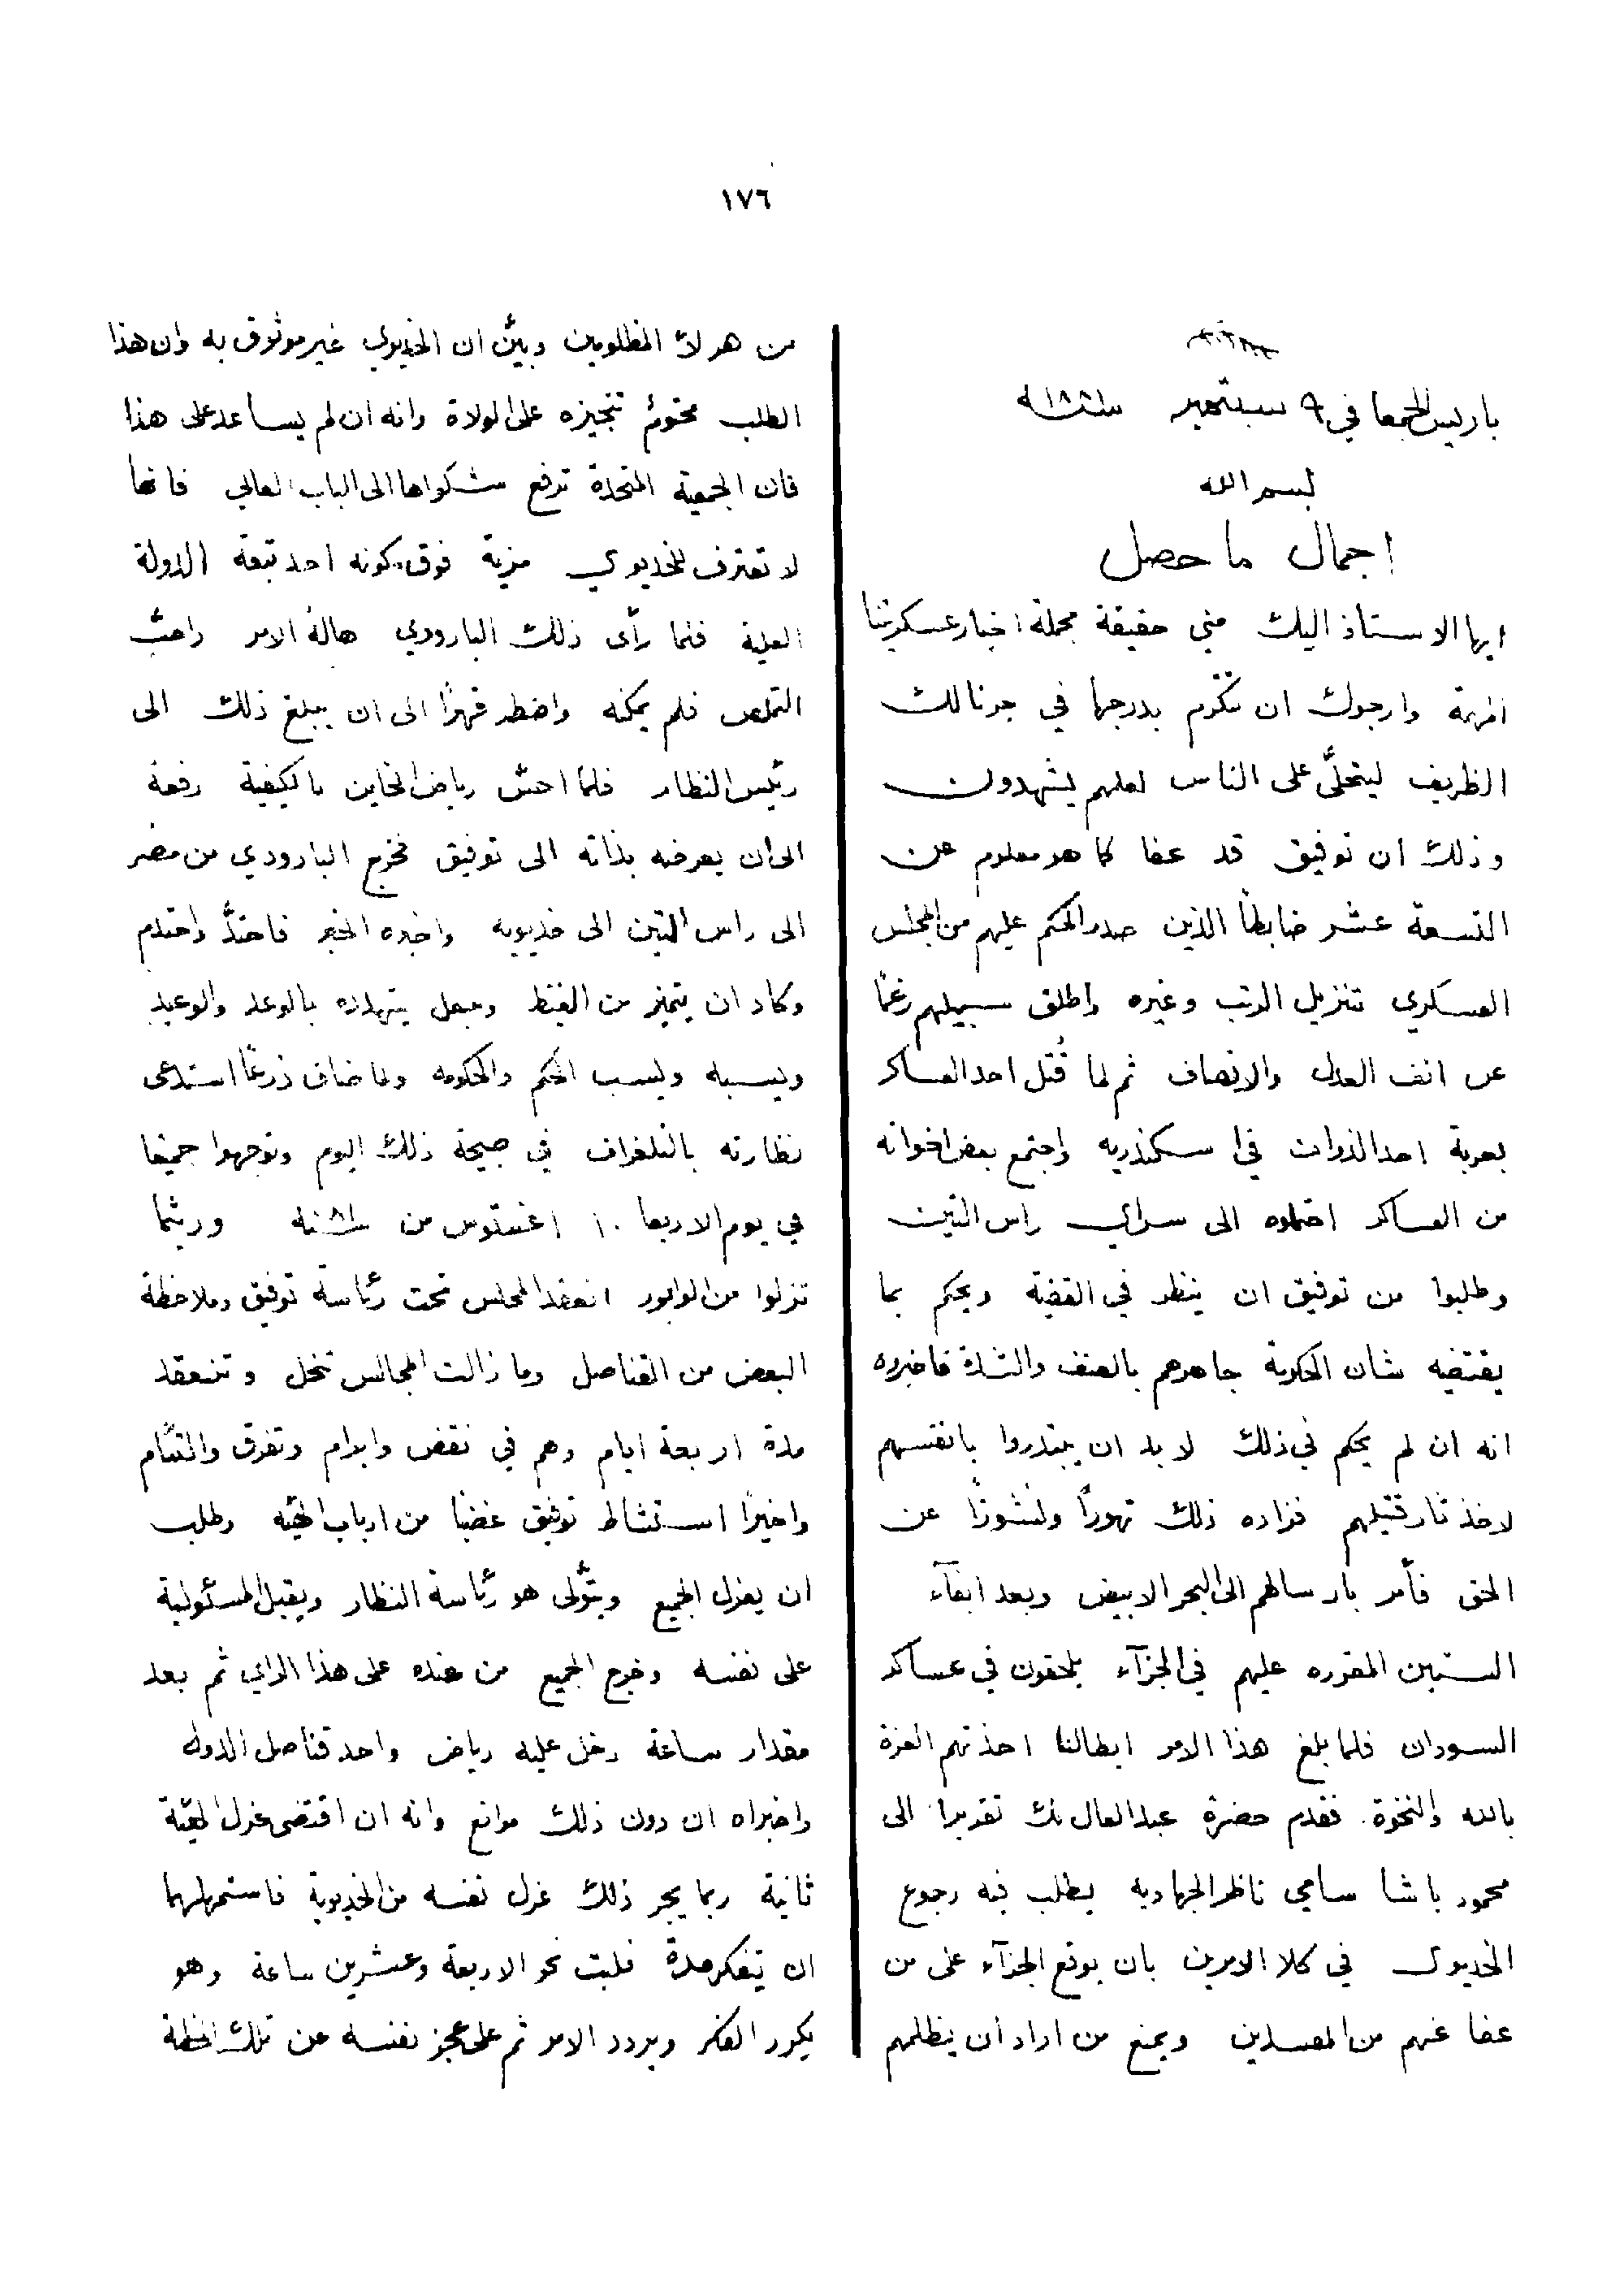 ١٧٦
باريس الجمعا في ٩ سبتمبر سنة ١٨٨١
بسم الله
اجمال ما حصل
ايها الاستاذ اليك مني حقيقة مجملة اخبار عسكرتنا
المهمة وارجوك ان تتكرم بدرجها في جرنالك
الظريف ليتحلّى على الناس لعلهم يشهدون
وذلك ان توفيق قد عفا كما هو معلوم عن
التسعة عشر ضابطاً الذين صدر الحكم عليهم من المجلس
العسكري تنزيل الرتب وغيره واطلق سبيلهم رغماً
عن انف العدل والانصاف ثم لما قُتل احد العساكر
بعربة احد الذوات في اسكندريه واجتمع بعض اخوانه
من العساكر احتملوه الى سراي راس التين
وطلبوا من توفيق ان ينظر في القضية ويحكم بما
يقتضيه شان الحكومة جاهرهم بالعنف والشدة فاخبروه
انه ان لم يحكم في ذلك لا بد ان يبتدروا بانفسهم
لاخذ ثار قتيلهم فزاده ذلك تهوراً ونشوزاً عن
الحق فأمر بارسالهم الى البحر الابيض وبعد ايفآء
السنين المقرره عليهم في الجزآء يلحقون في عساكر
السودان فلما بلغ هذا الامر ابطالنا اخذتهم العزة
بالله والنخوة فقدم حضرة عبد العال بك تقريرا الى
محمود باشا سامي ناظر الجهاديه يطلب فيه رجوع
الخديوي في كلا الامرين بان يوقع الجزآء على من
عفا عنهم من المفسدين ويمنع من اراد ان يظلمهم
من هولآ المظلومين وبيّن ان الخديوي غير موثوق به وان هذا
الطلب محتوم تنجيزه على الولاة وانه ان لم يساعد على هذا
فان الجمعية المتحدة ترفع شكواها الى الباب العالي فانها
لا تعترف للخديوي مزية فوق كونه احد تبعة الدولة
العلية فلما رأى ذلك البارودي هاله الامر واحب
التملص فلم يمكنه واضطر قهراً الى ان يبلغ ذلك الى
رئيس النظار فلما احسّ رياض الخاين بالكيفية رفعه
الى ان يعرضه بذاته الى توفيق فخرج البارودي من مصر
الى راس التين الى خديويه واخبره الخبر فاحتدّ واحتدم
وكاد ان يتميز من الغيظ وجعل يتهدده بالوعد والوعيد
ويسبه ويسب الحكم والحكومه ولما ضاق ذرعاً استدعى
نظارته بالتلغراف في صبيحة ذلك اليوم وتوجهوا جميعا
في يوم الاربعا ١٠ اغسطوس من سنة وريثما
نزلوا من الوابور انعقد المجلس تحت رئاسة توفيق وملاحظة
البعض من القناصل وما زالت المجالس تنحل وتنعقد
مدة اربعة ايام وهم في نقض وابرام وتفرق والتئام
واخيراً استشاط توفيق غضباً من ارباب الهيئه وطلب
ان يعزل الجميع ويتولى هو رئاسة النظار ويقبل المسئولية
على نفسه وخرج الجميع من عنده على هذا الراي ثم بعد
مقدار ساعة دخل عليه رياض واحد قناصل الدول
واخبراه ان دون ذلك موانع وانه ان اقتضى عزل الهيئة
ثانية ربما يجر ذلك عزل نفسه من الخديوية فاستمهلهما
ان يتفكر مدة فلبث نحو الاربعة وعشرين ساعة وهو
يكرر الفكر ويردد الامر ثم على عجز نفسه عن تلك الخطة